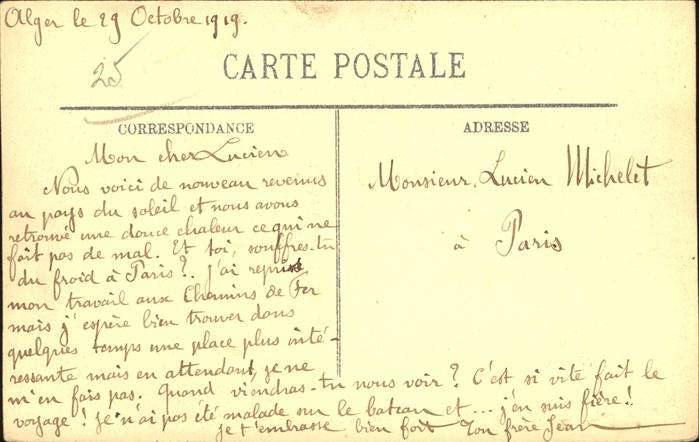 Alger le 29 Octobre 1919.
25
CARTE POSTALE
CORRESPONDANCE
Mon cher Lucien
Nous voici de nouveau revenus
au pays du soleil et nous avons
retrouvé une douce chaleur ce qui ne
fait pas de mal. Et toi, souffres-tu
du froid à Paris ? J'ai repris
mon travail aux Chemins de Fer
mais j'espère bien trouver dans
quelques temps une place plus inté-
ressante mais en attendant, je ne
m'en fais pas. Quand viendras-tu nous voir ? C'est si vite fait le
voyage ! Je n'ai pas été malade sur le bateau et ... j'en suis fière !
Je t'embrasse bien fort Ton frère Jean
ADRESSE
Monsieur Lucien Michelet
à Paris